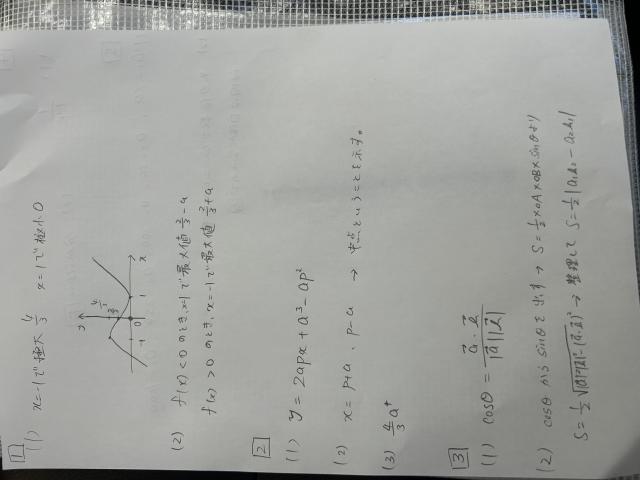 1
(1) x=-1で極大 4/3 x=1で極小0
y
4/3
2/3
-1 0 1 x
(2) f(x)<0のとき, x=1で最大値 2/3-a
f(x)>0のとき, x=-1で最大値 2/3+a
2
(1) y=2apx+a³-ap²
(2) x=p+a, p-a → 中点ということを示す。
(3) 4/3 a⁴
3
(1) cosθ = a⃗・b⃗ / |a⃗||b⃗|
(2) cosθからsinθを出す → S=1/2×OA×OB×sinθより
S=1/2√|a⃗|²|b⃗|²-(a⃗・b⃗)² → 整理して S=1/2|a₁b₂-a₂b₁|